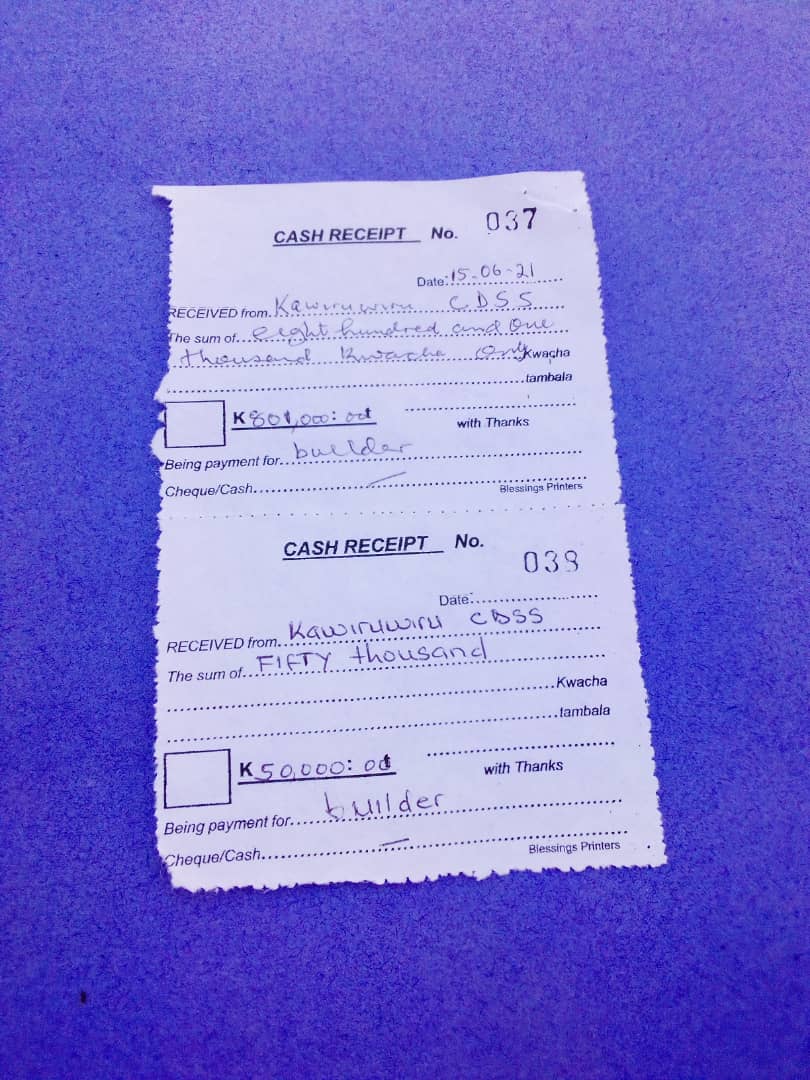 CASH RECEIPT No. 037
Date: 15-06-21
RECEIVED from. Kawiruwiru CDSS
The sum of. eight hundred and One
thousand Kwacha Only Kwacha
tambala
K 801,000:00t
with Thanks
Being payment for. builder
Cheque/Cash
Blessings Printers
CASH RECEIPT No.
038
Date:
RECEIVED from. Kawiruwiru CDSS
The sum of. FIFTY thousand
Kwacha
tambala
K 50,000:00t
with Thanks
Being payment for. builder
Cheque/Cash
Blessings Printers